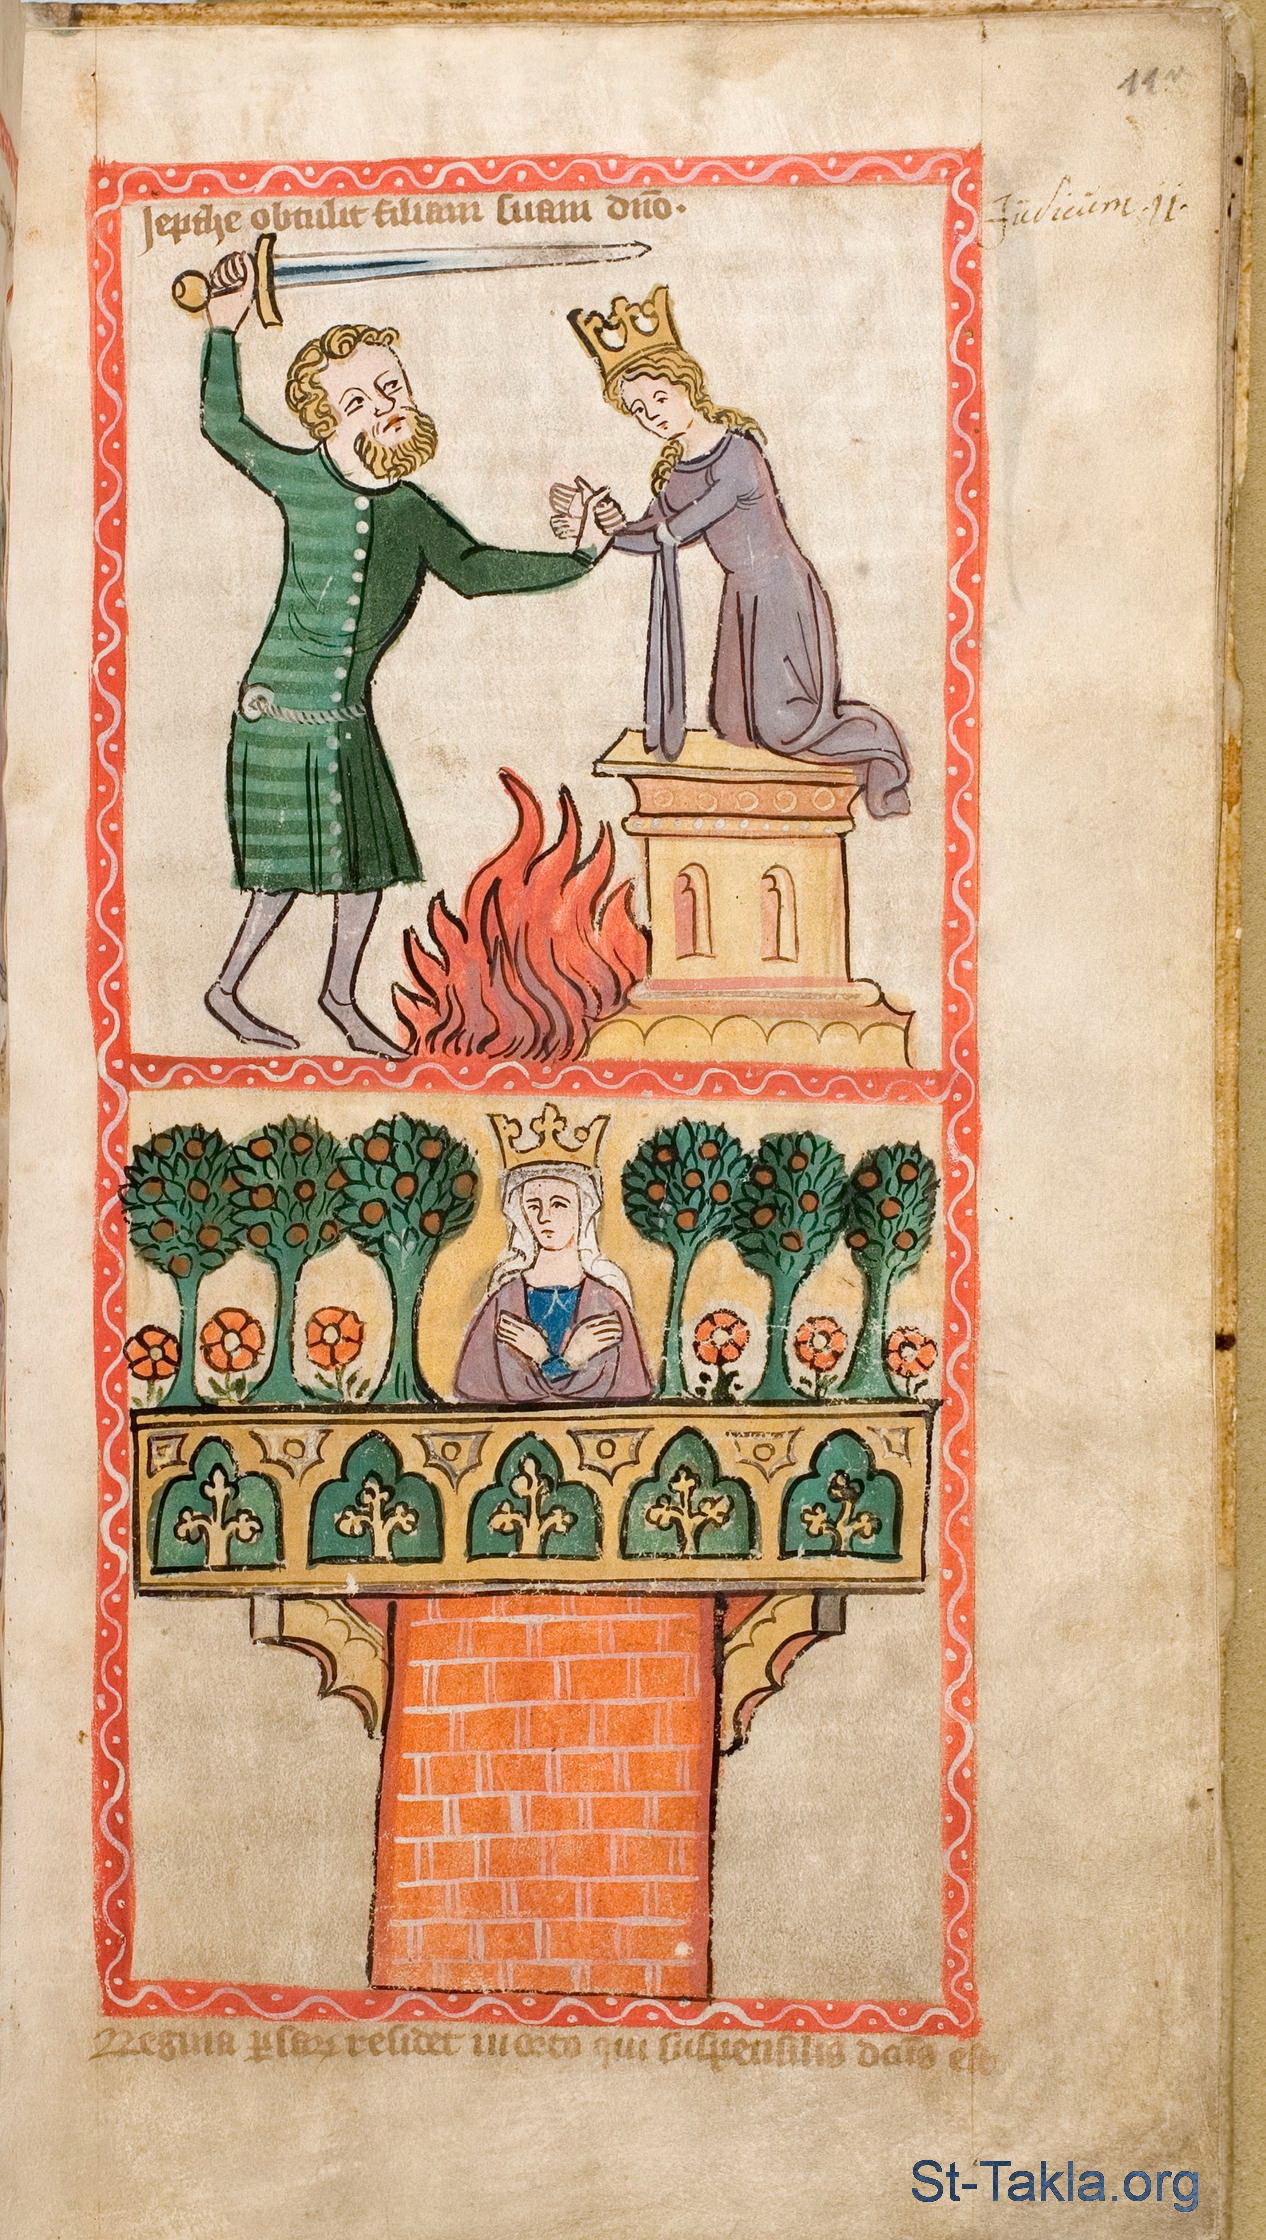 11v
Jepthe obtulit filiam suam dño.
Judicum .11.
Regina p̱sarꝫ residet in orto qui suspensilis dcūs est
St-Takla.org